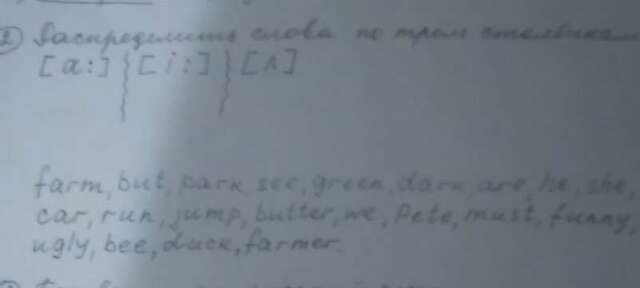 2) Распределить слова по трем столбикам
[a:] [i:] [ʌ]
farm, but, park, see, green, dark, are, he, she,
car, run, jump, butter, we, Pete, must, funny,
ugly, bee, duck, farmer.